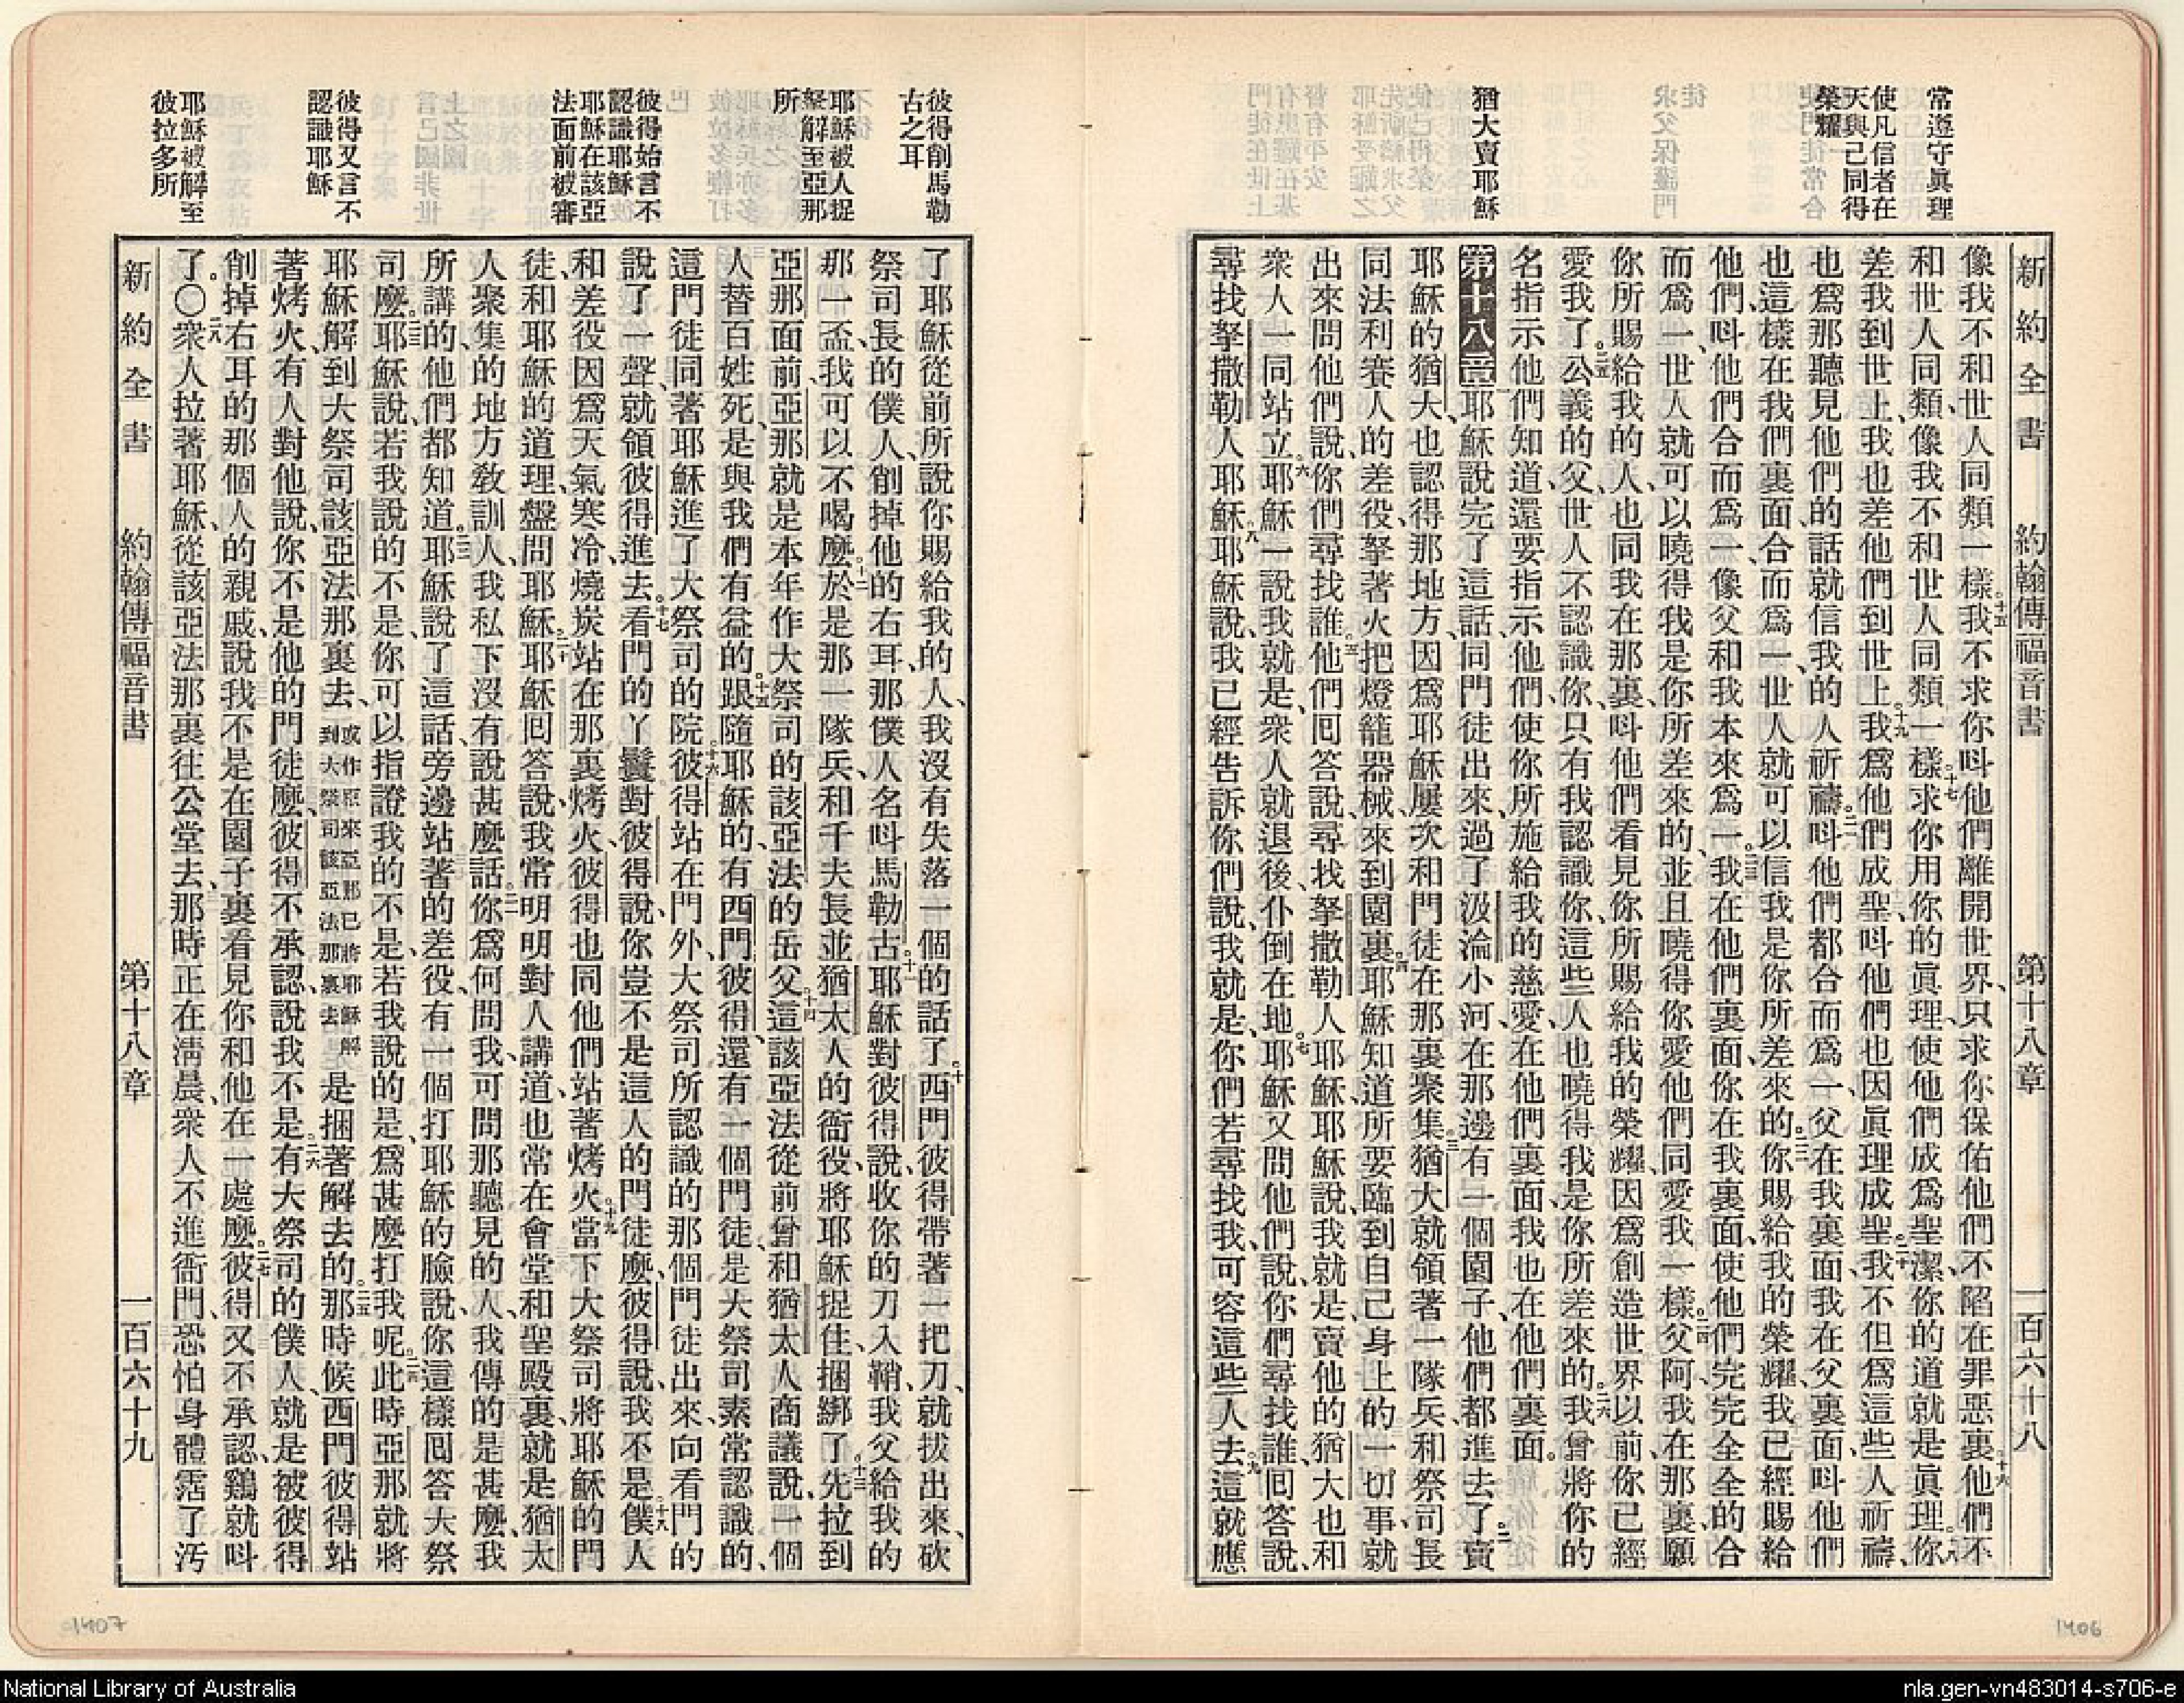 常遵守眞理
使凡信者在
天與己同得
榮耀
猶大賣耶穌
新約全書 約翰傳福音書 第十八章 一百六十八
像我不和世人同類一樣、十五我不求你呌他們離開世界、只求你保佑他們不陷在罪惡裏、十六他們不
和世人同類、像我不和世人同類一樣、十七求你用你的眞理、使他們成爲聖潔、你的道就是眞理、十八你
差我到世上、我也差他們到世上、十九我爲他們成聖、呌他們也因眞理成聖、二十我不但爲這些人祈禱、
也爲那聽見他們的話就信我的人祈禱、二一呌他們都合而爲一、父在我裏面、我在父裏面、呌他們
也這樣在我們裏面合而爲一、世人就可以信我是你所差來的、二二你賜給我的榮耀、我已經賜給
他們、呌他們合而爲一、像父和我本來爲一、二三我在他們裏面、你在我裏面、使他們完完全全的合
而爲一、世人就可以曉得我是你所差來的、並且曉得你愛他們、同愛我一樣、二四父阿、我在那裏、願
你所賜給我的人、也同我在那裏、呌他們看見你所賜給我的榮耀、因爲創造世界以前、你已經
愛我了。二五公義的父、世人不認識你、只有我認識你、這些人也曉得我是你所差來的、二六我曾將你的
名指示他們知道、還要指示他們、使你所施給我的慈愛、在他們裏面、我也在他們裏面。
第十八章 一耶穌說完了這話、同門徒出來、過了汲淪小河、在那邊有一個園子、他們都進去了。二賣
耶穌的猶大、也認得那地方、因爲耶穌屢次和門徒在那裏聚集。三猶大就領著一隊兵、和祭司長
同法利賽人的差役、拏著火把燈籠器械、來到園裏。四耶穌知道所要臨到自己身上的一切事、就
出來問他們說、你們尋找誰。五他們回答說、尋找拏撒勒人耶穌、耶穌說、我就是、賣他的猶大也和
衆人一同站立。六耶穌一說我就是、衆人就退後、仆倒在地。七耶穌又問他們說、你們尋找誰、回答說、
尋找拏撒勒人耶穌。八耶穌說、我已經告訴你們說、我就是、你們若尋找我、可容這些人去。九這就應
彼得削馬勒
古之耳
耶穌被人捉
拏解至亞那
所
彼得始言不
認識耶穌
耶穌在該亞
法面前被審
彼得又言不
認識耶穌
耶穌被解至
彼拉多所
了耶穌從前所說、你賜給我的人、我沒有失落一個的話了。十西門彼得帶著一把刀、就拔出來、砍
祭司長的僕人、削掉他的右耳、那僕人名呌馬勒古。十一耶穌對彼得說、收你的刀入鞘、我父給我的
那一盃、我可以不喝麽。十二於是那一隊兵、和千夫長、並猶太人的衙役、將耶穌捉住、捆綁了。十三先拉到
亞那面前、亞那就是本年作大祭司的該亞法的岳父。十四這該亞法從前曾和猶太人商議說、一個
人替百姓死、是與我們有益的。十五跟隨耶穌的、有西門彼得、還有一個門徒、是大祭司素常認識的、
這門徒同著耶穌進了大祭司的院。十六彼得站在門外、大祭司所認識的那個門徒出來、向看門的
說了一聲、就領彼得進去。十七看門的丫鬟對彼得說、你豈不是這人的門徒麽、彼得說、我不是。十八僕人
和差役、因爲天氣寒冷、燒炭站在那裏烤火、彼得也同他們站著烤火。十九當下大祭司將耶穌的門
徒、和耶穌的道理、盤問耶穌。二十耶穌回答說、我常明明對人講道、也常在會堂和聖殿裏、就是猶太
人聚集的地方敎訓人、我私下沒有說甚麽話。二一你爲何問我、可問那聽見的人、我傳的是甚麽、我
所講的、他們都知道。二二耶穌說了這話、旁邊站著的差役、有一個打耶穌的臉說、你這樣回答大祭
司麽。二三耶穌說、若我說的不是、你可以指證我的不是、若我說的是、爲甚麽打我呢。二四此時亞那就將
耶穌解到大祭司該亞法那裏去、或作原來亞那已將耶穌解到大祭司該亞法那裏去是捆著解去的。二五那時候、西門彼得站
著烤火、有人對他說、你不是他的門徒麽、彼得不承認、說我不是。二六有大祭司的僕人、就是被彼得
削掉右耳的那個人的親戚、說我不是在園子裏看見你和他在一處麽。二七彼得又不承認、鷄就呌
了。〇二八衆人拉著耶穌、從該亞法那裏往公堂去、那時正在淸晨、衆人不進衙門、恐怕身體霑了汚
新約全書 約翰傳福音書 第十八章 一百六十九
1407
1406
National Library of Australia
nla.gen-vn483014-s706-e